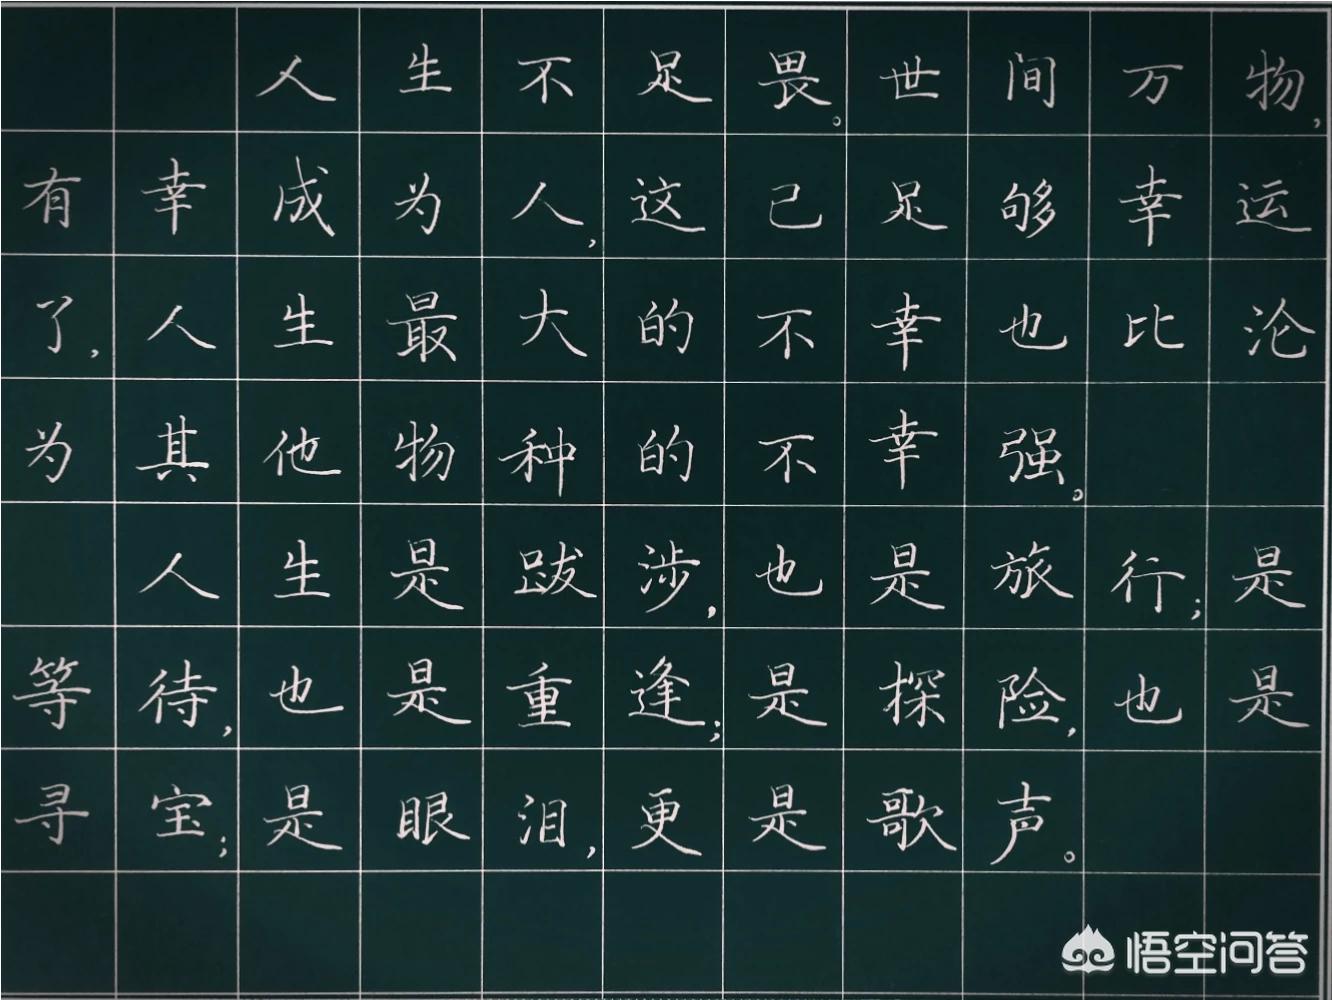 人生不足畏。世间万物,
有幸成为人,这已足够幸运
了,人生最大的不幸也比沦
为其他物种的不幸强。
人生是跋涉,也是旅行;是
等待,也是重逢;是探险,也是
寻宝;是眼泪,更是歌声。
悟空问答